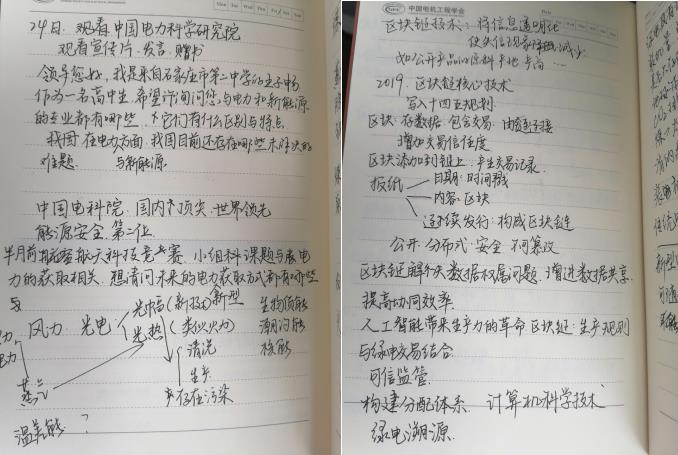 24日、观看中国电力科学研究院
观看宣传片、发言、赠书
领导您好,我是来自石家庄市第二中学的
作为一名高中生,希望询问您,与电力和新能源
的专业都有哪些,它们有什么区别与特点
我国在电力方面,我国目前还存在哪些未解决的
难题 与新能源
中国电科院 国内顶尖、世界领先
能源安全 第一位
半月前 航大科技竞赛,小组科课题与废电
力的获取相关,想请问未来的电力获取方式都有哪些
风力 光电 光热 (新技) 新型 生物质能
(类似火力) 潮汐能
清洗 核能
生产
存在污染
蒸汽
温差能 ?
中国电机工程学会
区块链技术:将信息透明化
使失信现象 减少
如公开产品的原料 产地
2019. 区块链核心技术
写入十四五规划
区块:存数据 包含交易 由链连接
增加交易信任度
区块添加到链上,产生交易记录
报纸 日期:时间戳
内容:区块
连续发行:构成区块链
公开 分布式 安全 不可篡改
区块链解决数据权属问题,增进数据共享
提高协同效率
人工智能带来生产力的革命 区块链:生产规则
与绿电交易结合
可信监管
构建分配体系 计算机科学技术
绿电溯源